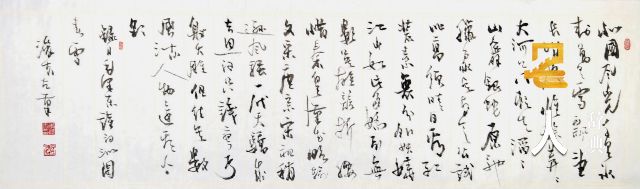 北國風光千里冰
封萬里雪飄望
長城内外惟餘莽莽
大河上下頓失滔滔
山舞銀蛇原馳
蠟象欲與天公試
比高須晴日看紅
裝素裹分外妖嬈
江山如此多嬌引無
數英雄競折腰
惜秦皇漢武略輸
文采唐宗宋祖稍
遜風騷一代天驕成
吉思汗只識彎弓
射大雕俱往矣數
風流人物還看今
朝
錄毛澤東詩詞沁園
春雪